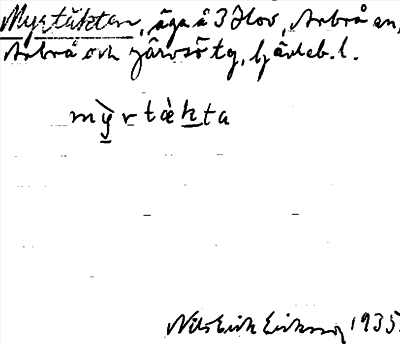 Myrtäkten, äga å 3 Hov, Arbrå sn,
Arbrå och Järvsö tg, Gävleb. l.
mỳrtæ̀kta
Nils Erik Eriksson 1935.